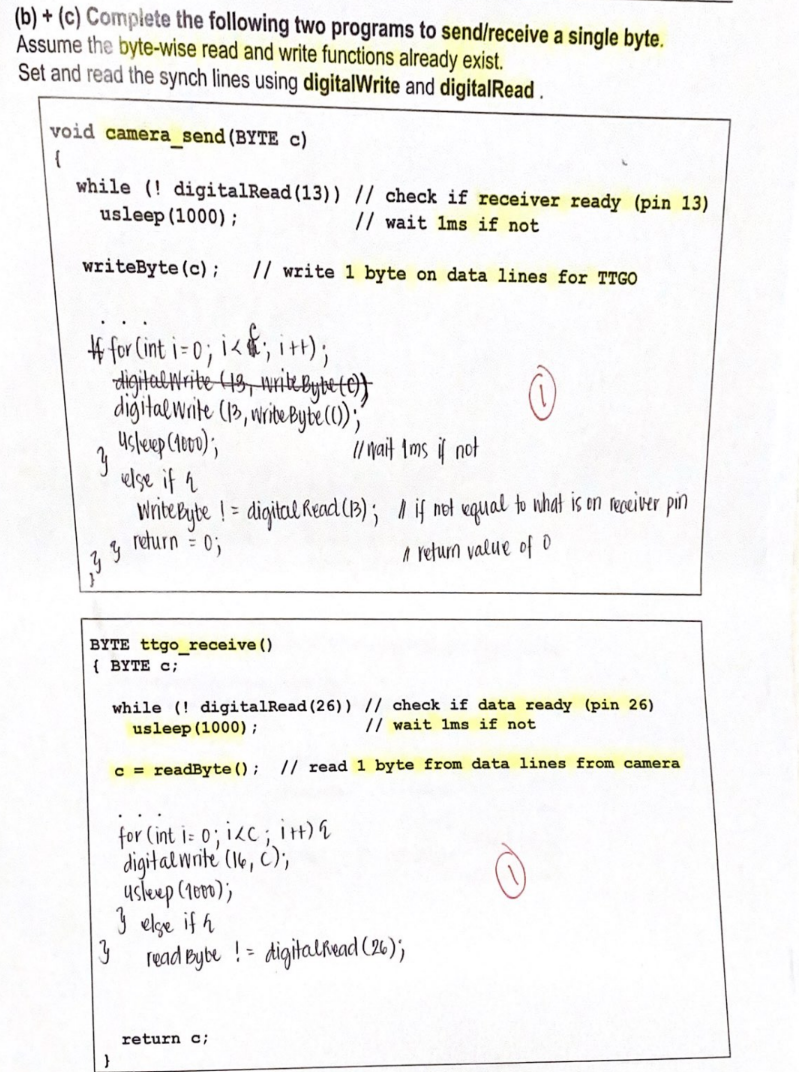 (b) + (c) Complete the following two programs to send/receive a single byte.
Assume the byte-wise read and write functions already exist.
Set and read the synch lines using digitalWrite and digitalRead .
void camera_send(BYTE c)
{
while (! digitalRead(13)) // check if receiver ready (pin 13)
usleep(1000); // wait 1ms if not
writeByte(c); // write 1 byte on data lines for TTGO
. . .
for (int i=0; i< c; i++);
digitalWrite (13, writeByte(c))
digitalWrite (13, writeByte(c));
usleep(1000); //wait 1ms if not
} else if {
WriteByte != digitalRead(13); // if not equal to what is on receiver pin
} return = 0; // return value of 0
}
}
1
BYTE ttgo_receive()
{ BYTE c;
while (! digitalRead(26)) // check if data ready (pin 26)
usleep(1000); // wait 1ms if not
c = readByte(); // read 1 byte from data lines from camera
. . .
for (int i= 0; i<c; i++) {
digitalWrite (16, c);
usleep(1000);
} else if {
} readByte != digitalRead(26);
1
return c;
}